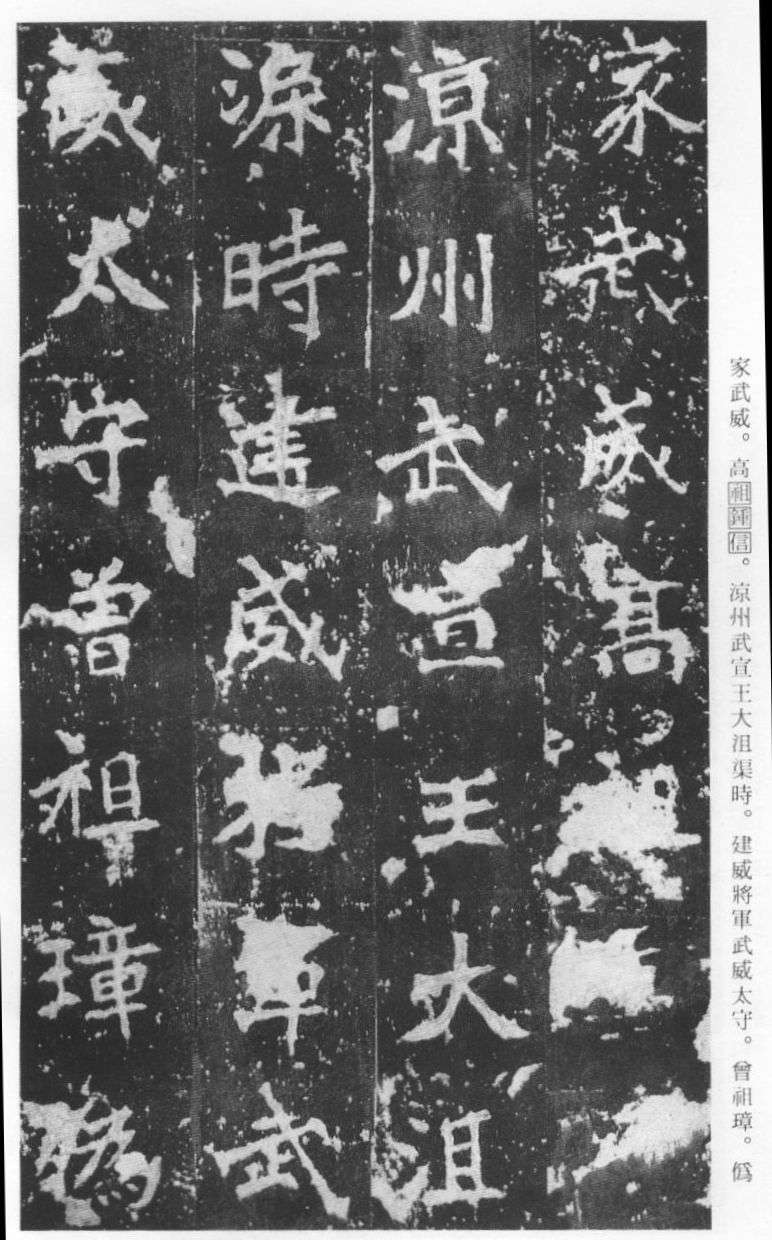 家武威。高祖鍾信。涼州武宣王大沮渠時。建威將軍武威太守。曾祖璋。僞
家武威高
涼州武宣王大沮
渠時建威將軍武
威太守曾祖璋僞